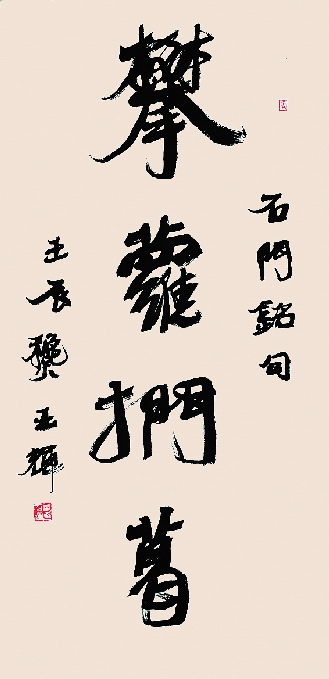 石門銘句
攀蘿捫葛
壬辰 輝